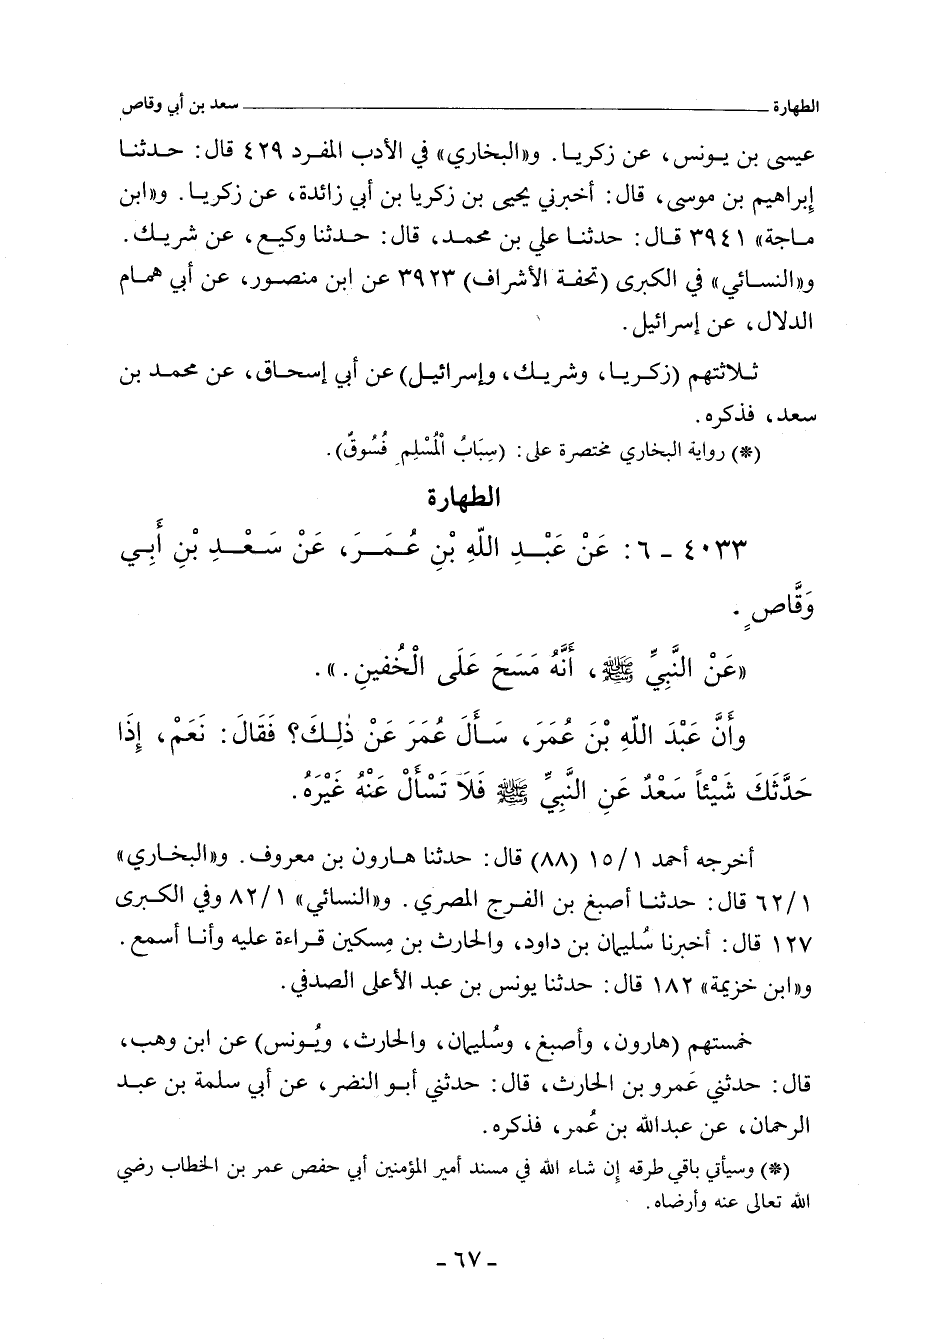 الطهارة ــــــــــــــــــــــــ سعد بن أبي وقاص
عيسى بن يونس، عن زكريا. و«البخاري» في الأدب المفرد ٤٢٩ قال: حدثنا
إبراهيم بن موسى، قال: أخبرني يحيى بن زكريا بن أبي زائدة، عن زكريا. و«ابن
ماجة» ٣٩٤١ قال: حدثنا علي بن محمد، قال: حدثنا وكيع، عن شريك.
و«النسائي» في الكبرى (تحفة الأشراف) ٣٩٢٣ عن ابن منصور، عن أبي همام
الدلال، عن إسرائيل.
ثلاثتهم (زكريا، وشريك، وإسرائيل) عن أبي إسحاق، عن محمد بن
سعد، فذكره.
(*) رواية البخاري مختصرة على: (سِبَابُ الْمُسْلِمِ فُسُوقٌ).
الطهارة
٤٠٣٣ - ٦: عَنْ عَبْدِ اللّهِ بْنِ عُمَرَ، عَنْ سَعْدِ بْنِ أَبِي
وَقَّاصٍ.
«عَنْ النَّبِيِّ ﷺ، أَنَّهُ مَسَحَ عَلَى الْخُفينِ.».
وأَنَّ عَبْدَ اللّهِ بْنَ عُمَرَ، سَأَلَ عُمَرَ عَنْ ذٰلِكَ؟ فَقَالَ: نَعَمْ، إِذَا
حَدَّثَكَ شَيْئاً سَعْدٌ عَنِ النَّبِيِّ ﷺ فَلاَ تَسْأَلْ عَنْهُ غَيْرَهُ.
أخرجه أحمد ١/١٥ (٨٨) قال: حدثنا هارون بن معروف. و«البخاري»
١/٦٢ قال: حدثنا أصبغ بن الفرج المصري. و«النسائي» ١/٨٢ وفي الكبرى
١٢٧ قال: أخبرنا سُليمان بن داود، والحارث بن مِسكين قراءة عليه وأنا أسمع.
و«ابن خزيمة» ١٨٢ قال: حدثنا يونس بن عبد الأعلى الصدفي.
خمستهم (هارون، وأصبغ، وسُليمان، والحارث، ويُونس) عن ابن وهب،
قال: حدثني عَمرو بن الحارث، قال: حدثني أبو النضر، عن أبي سلمة بن عبد
الرحمان، عن عبدالله بن عُمر، فذكره.
(*) وسيأتي باقي طرقه إن شاء الله في مسند أمير المؤمنين أبي حفص عمر بن الخطاب رضي
الله تعالى عنه وأرضاه.
- ٦٧ -